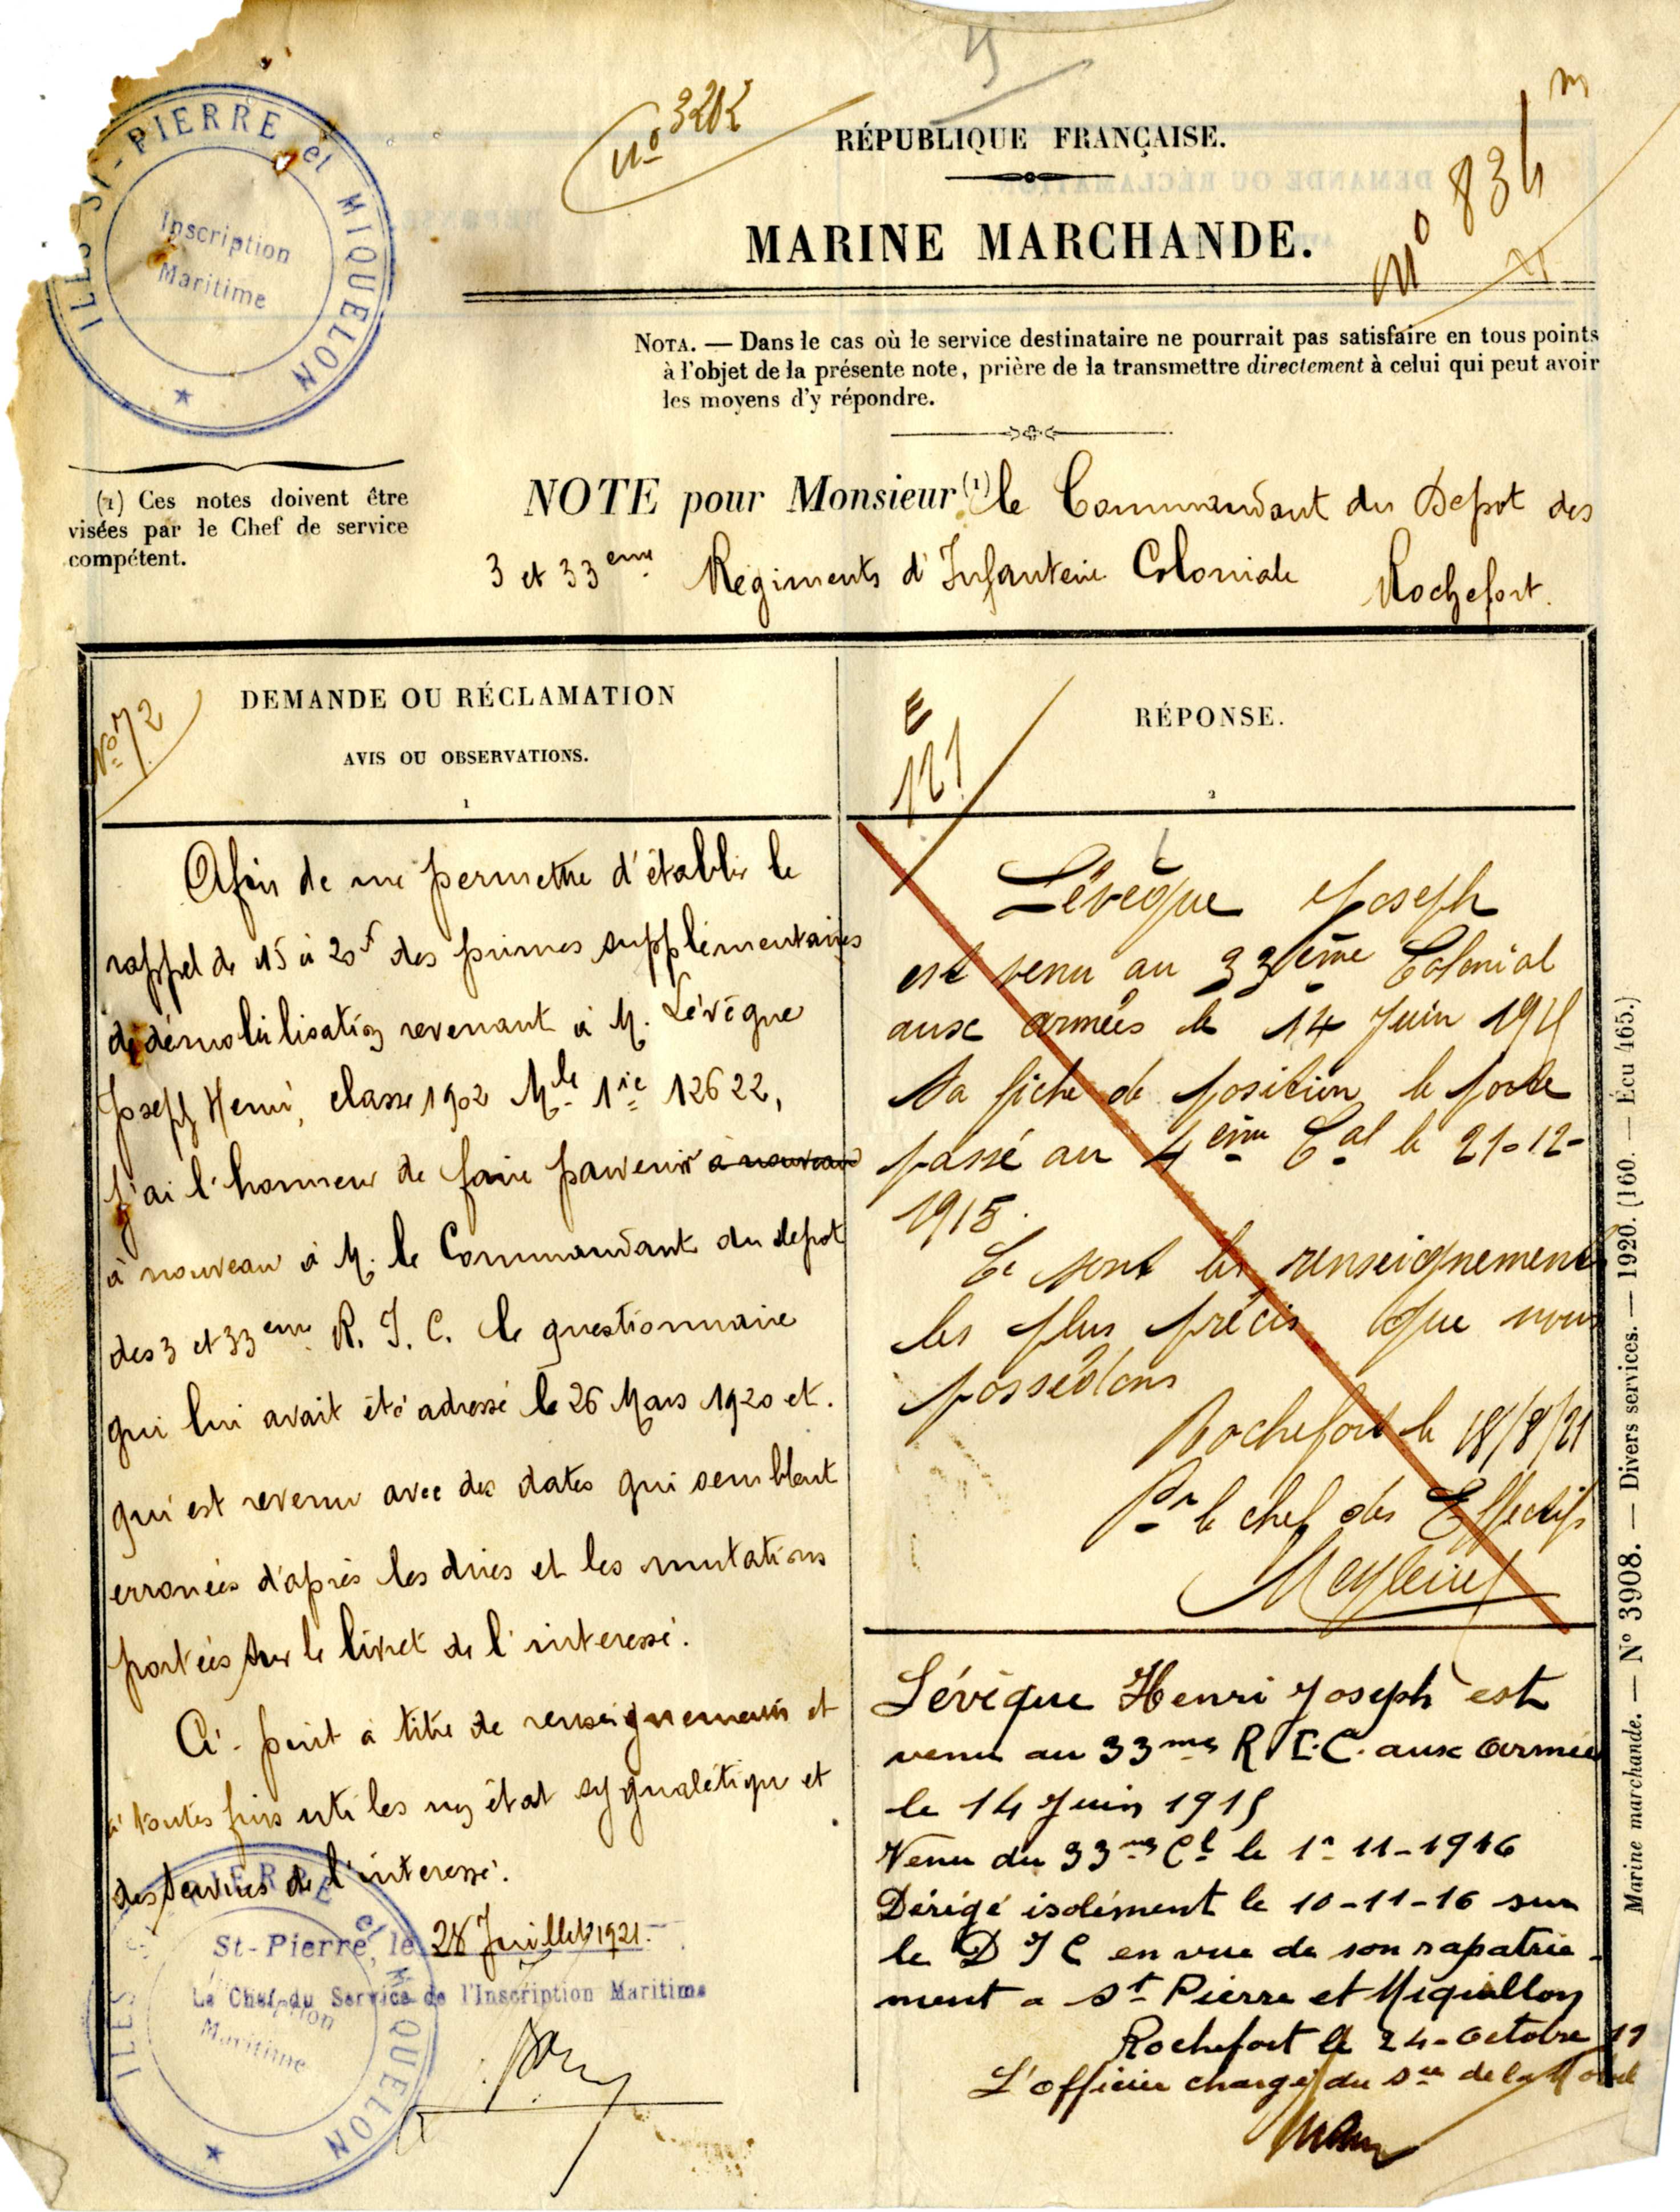 ILES ST-PIERRE et MIQUELON
Inscription
Maritime
No 3202
RÉPUBLIQUE FRANÇAISE.
MARINE MARCHANDE.
No 834
NOTA. — Dans le cas où le service destinataire ne pourrait pas satisfaire en tous points
à l'objet de la présente note, prière de la transmettre directement à celui qui peut avoir
les moyens d'y répondre.
(1) Ces notes doivent être
visées par le Chef de service
compétent.
NOTE pour Monsieur (1) le Commandant du Depot des
3 et 33eme Régiments d'Infanterie Coloniale Rochefort.
No 72
DEMANDE OU RÉCLAMATION
AVIS OU OBSERVATIONS.
1
Afin de me permettre d'établir le
rappel de 15 à 20f des primes supplémentaires
de démobilisation revenant à M. Lévêque
Joseph Henri, classe 1902 Mle 1re 12622,
j'ai l'honneur de faire parvenir à nouveau
à nouveau à M. le Commandant du depot
des 3 et 33eme R. I. C. le questionnaire
qui lui avait été adressé le 26 Mars 1920 et
qui est revenu avec des dates qui semblent
erronées d'après les dires et les mutations
portées sur le livret de l'interessé.
Ci-joint à titre de renseignements et
à toutes fins utiles un état sygnalétique et
des services de l'interessé.
St-Pierre, le 28 Juillet 1921.
Le Chef du Service de l'Inscription Maritime
ILES ST-PIERRE et MIQUELON
Inscription
Maritime
E
121
RÉPONSE.
2
Lévêque Joseph
est venu au 33ème Colonial
aux armées le 14 Juin 1915
Sa fiche de position le porte
passé au 4ème Cal le 21-12-
1915.
Ce sont les renseignements
les plus précis que nous
possédons
Rochefort le 18/8/21
Pr le chef des Effectifs
Lévêque Henri Joseph est
venu au 33me R.I.C. aux armées
le 14 Juin 1915
Venu du 33me Cl le 1r 11-1916
Dirigé isolément le 10-11-16 sur
le D I C en vue de son rapatrie-
ment a St Pierre et Miquellon
Rochefort le 24-Octobre 21
L'officier chargé du sce de la Mobil
Marine marchande. — N° 3908. — Divers services. — 1920. (160. — Écu 465.)